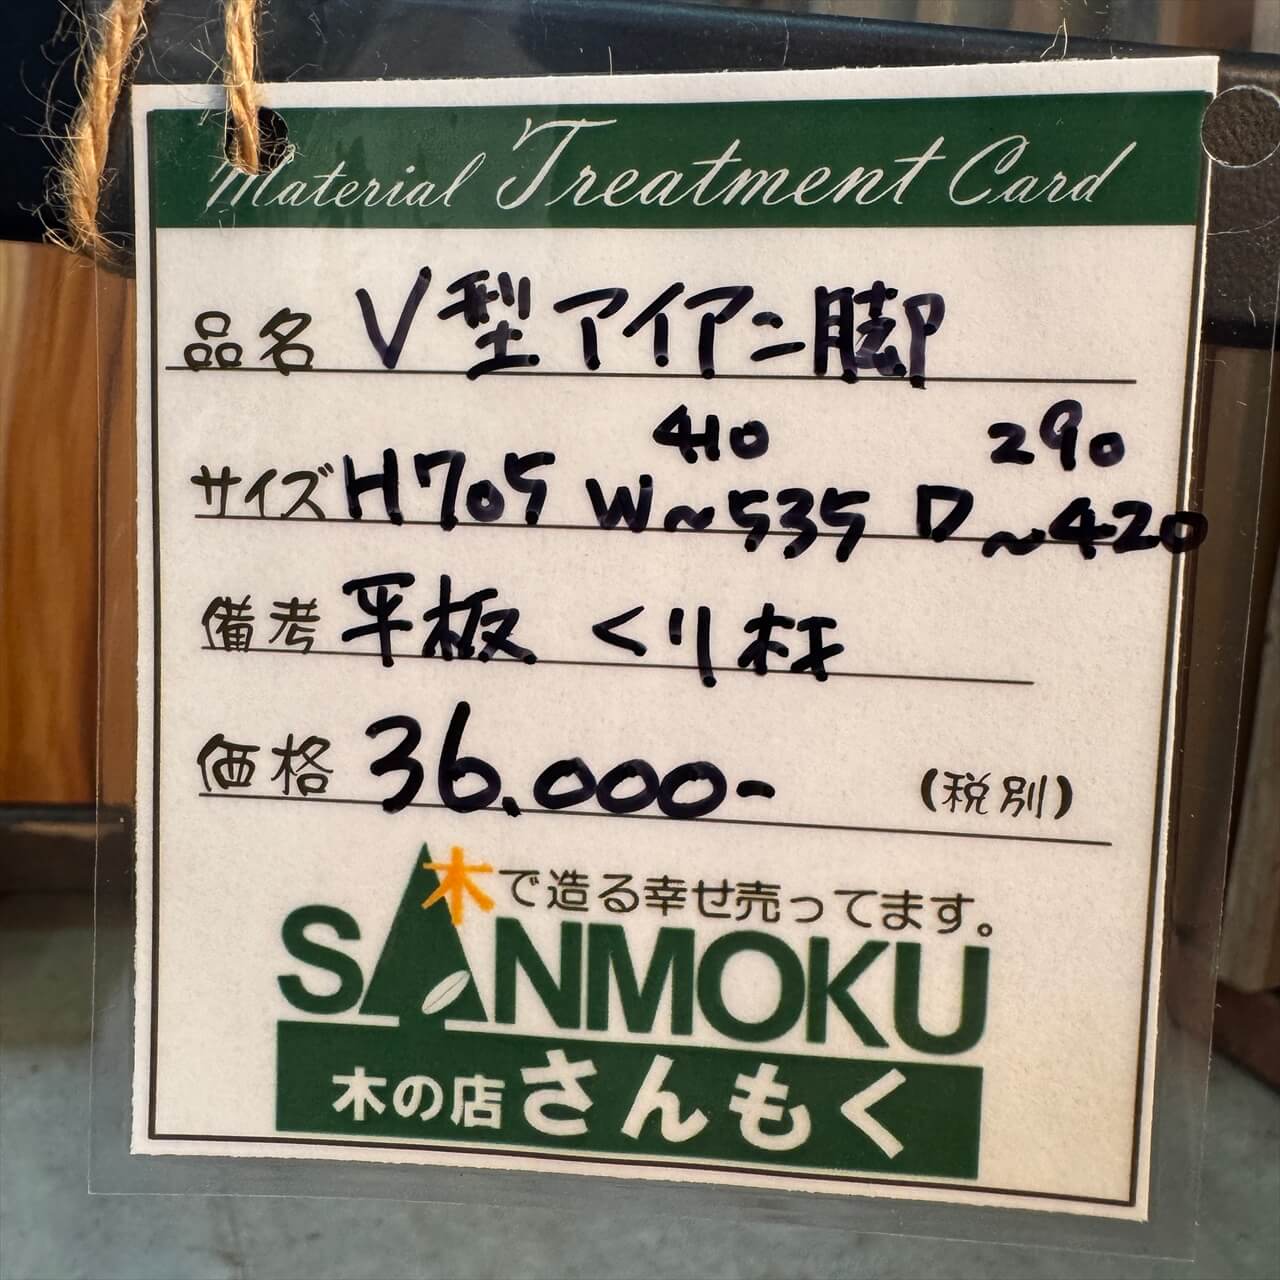 Material Treatment Card
品名 V型アイアン脚
サイズ H705 W410~535 D290~420
備考 平板 くり材
価格 36.000- (税別)
木で造る幸せ売ってます。
SANMOKU
木の店さんもく